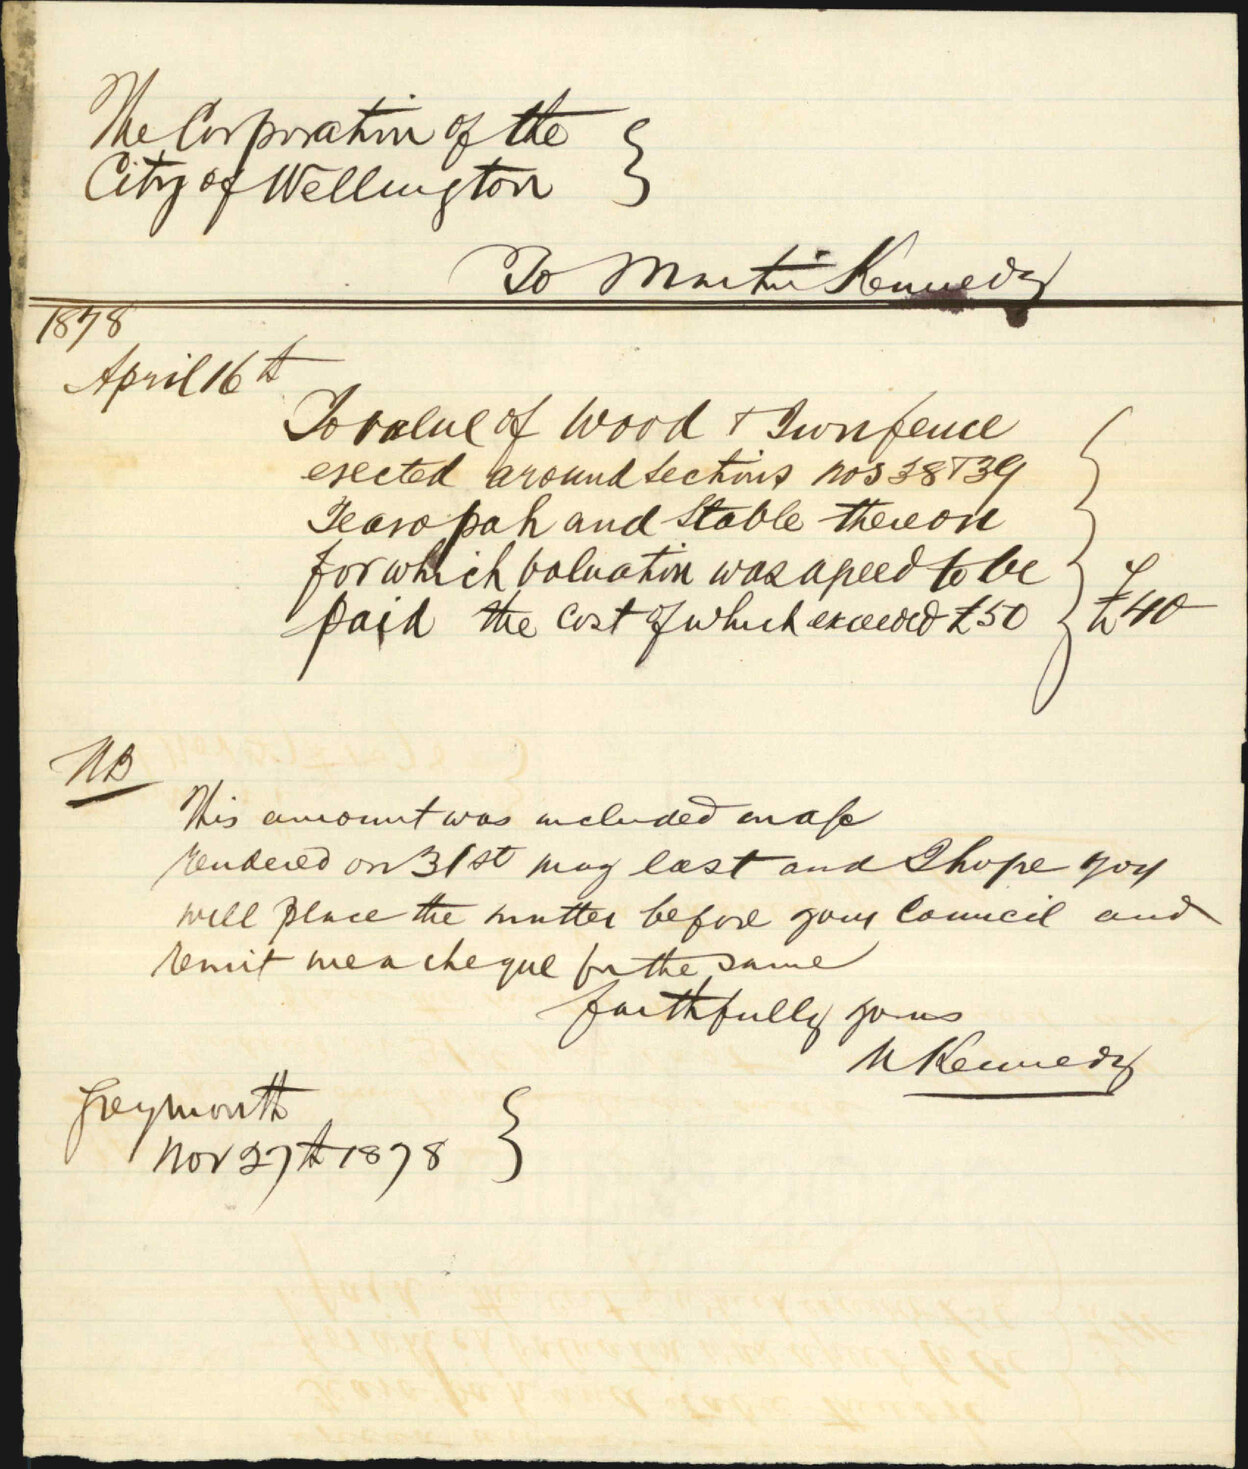 The Corporation of the
City of Wellington
To Martin Kennedy
1878
April 16th
To value of Wood & Iron fence
erected around sections nos 38 & 39
Tearo pah and Stable thereon
for which valuation was agreed to be
paid the cost of which exceeded £50
£40
NB
This amount was included in a/c
rendered on 31st may last and I hope you
will place the matter before your Council and
remit me a cheque for the same
faithfully yours
M Kennedy
Greymouth
Nov 27th 1878